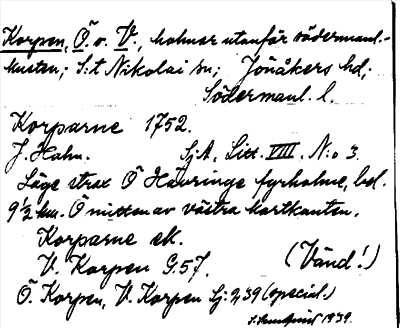 Korpen, Ö. o. V., holmar utanför södermanl.-
kusten; S:t Nikolai sn; Jönåkers hd;
Södermanl. l.
Korparne 1752.
J. Hahn. SjA, Litt. VIII. N:o 3.
Läge strax Ö Hävringe fyrholme, bel.
9½ km. Ö mitten av västra kartkanten.
Korparne ek.
V. Korpen G.57. (Vänd!)
Ö. Korpen, V. Korpen Sj: 2,39 (special.)
1939.